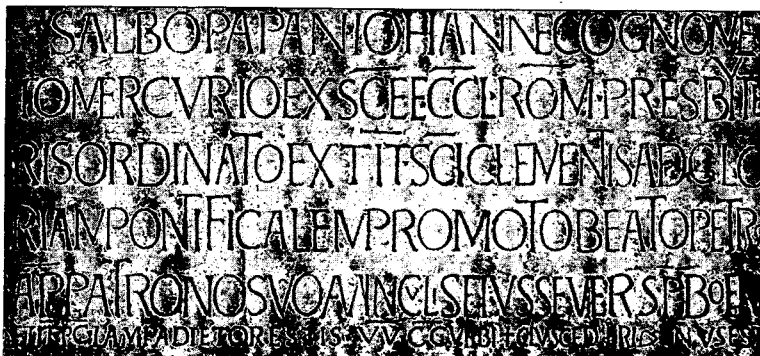 SALBO PAPA N IOHANNE COGNOME
TO MERCVRIO EX SCE ECCL·ROM·PRESBYTE
RIS ORDINATO EX TIT SCI CLEMENTIS AD GLO
RIAM PONTIFICALEM PROMOTO BEATO PETRO
AP PATRONO SVO A VINCVLIS EIVS SEVERVS PB OFERT